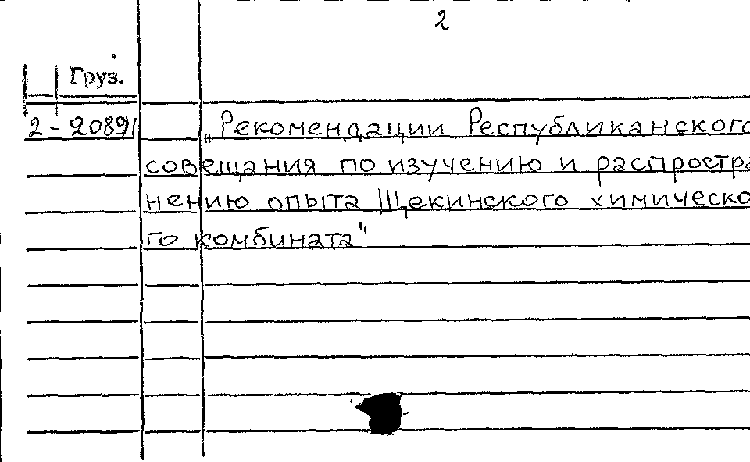 2
Груз.
2-20891 „Рекомендации Республиканского
совещания по изучению и распростра
нению опыта Щекинского химическо
го комбината"